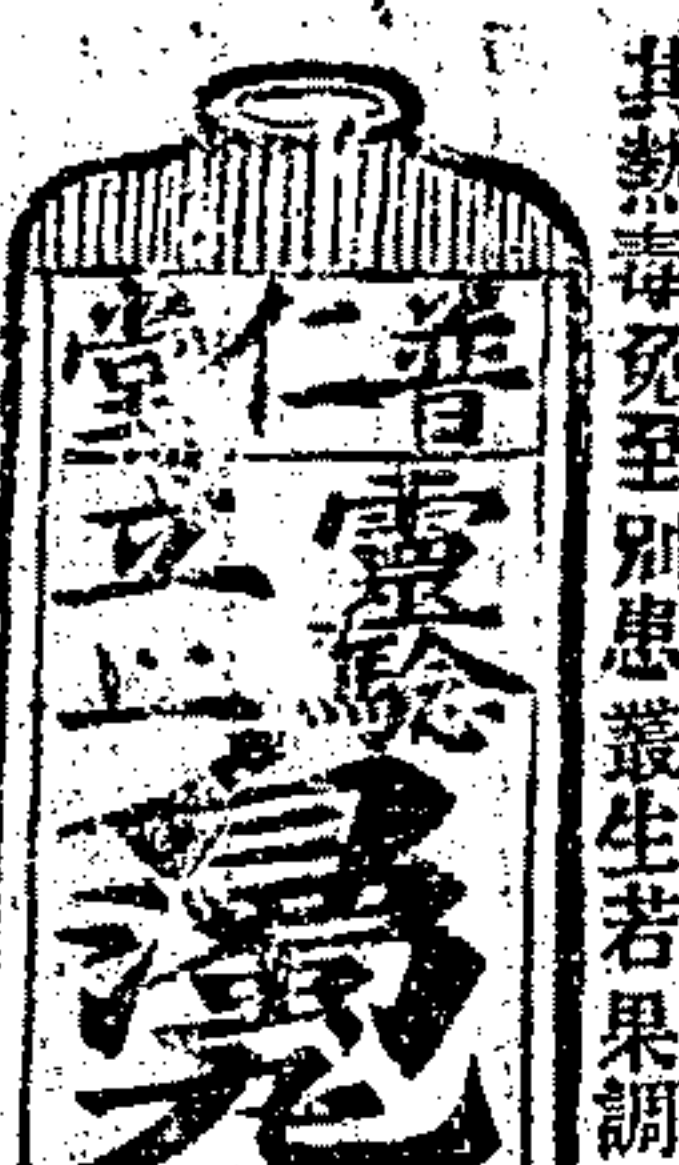 其熱毒免至別患叢生若果調
普仁堂
靈驗
立止
瀉丸